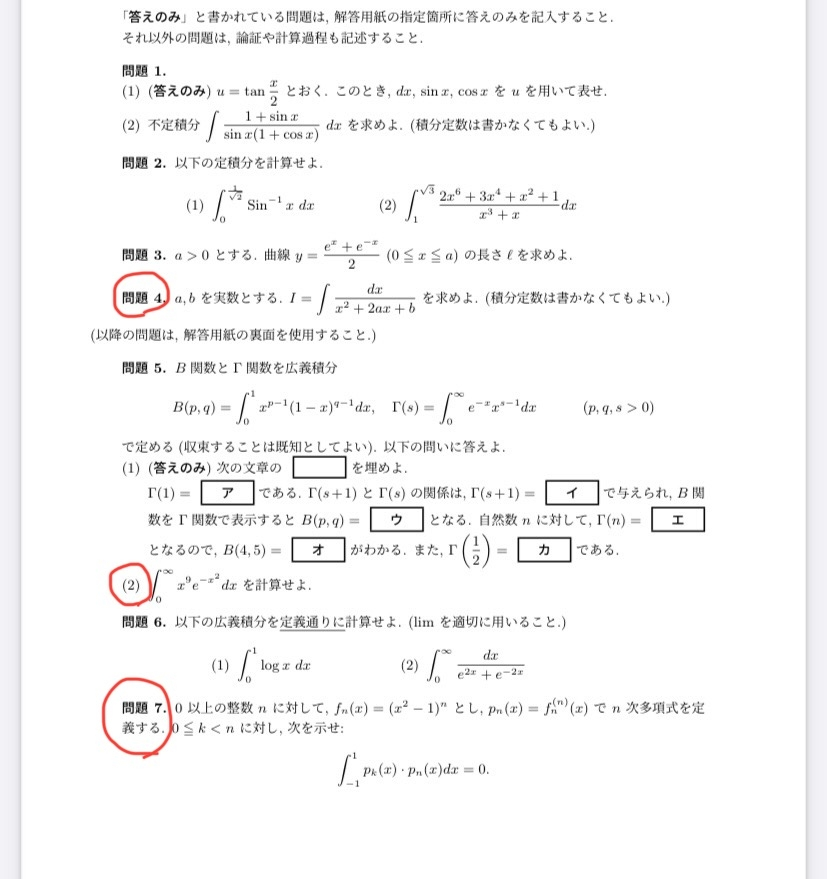 「答えのみ」と書かれている問題は, 解答用紙の指定箇所に答えのみを記入すること.
それ以外の問題は, 論証や計算過程も記述すること.
問題 1.
(1) (答えのみ) u = tan x/2 とおく. このとき, dx, sin x, cos x を u を用いて表せ.
(2) 不定積分 ∫ (1 + sin x)/(sin x(1 + cos x)) dx を求めよ. (積分定数は書かなくてもよい.)
問題 2. 以下の定積分を計算せよ.
(1) ∫_0^{1/√2} Sin⁻¹ x dx (2) ∫_1^{√3} (2x⁶ + 3x⁴ + x² + 1)/(x³ + x) dx
問題 3. a > 0 とする. 曲線 y = (eˣ + e⁻ˣ)/2 (0 ≦ x ≦ a) の長さ ℓ を求めよ.
問題 4. a, b を実数とする. I = ∫ dx/(x² + 2ax + b) を求めよ. (積分定数は書かなくてもよい.)
(以降の問題は, 解答用紙の裏面を使用すること.)
問題 5. B 関数と Γ 関数を広義積分
B(p, q) = ∫_0^1 x^{p−1}(1 − x)^{q−1}dx, Γ(s) = ∫_0^∞ e^{−x}x^{s−1}dx (p, q, s > 0)
で定める (収束することは既知としてよい). 以下の問いに答えよ.
(1) (答えのみ) 次の文章の を埋めよ.
Γ(1) = ア である. Γ(s+1) と Γ(s) の関係は, Γ(s+1) = イ で与えられ, B 関
数を Γ 関数で表示すると B(p, q) = ウ となる. 自然数 n に対して, Γ(n) = エ
となるので, B(4, 5) = オ がわかる. また, Γ(1/2) = カ である.
(2) ∫_0^∞ x⁹e^{−x²}dx を計算せよ.
問題 6. 以下の広義積分を定義通りに計算せよ. (lim を適切に用いること.)
(1) ∫_0^1 log x dx (2) ∫_0^∞ dx/(e^{2x} + e^{−2x})
問題 7. 0 以上の整数 n に対して, fₙ(x) = (x² − 1)ⁿ とし, pₙ(x) = fₙ^{(n)}(x) で n 次多項式を定
義する. 0 ≦ k < n に対し, 次を示せ:
∫_{−1}^1 pₖ(x) · pₙ(x)dx = 0.